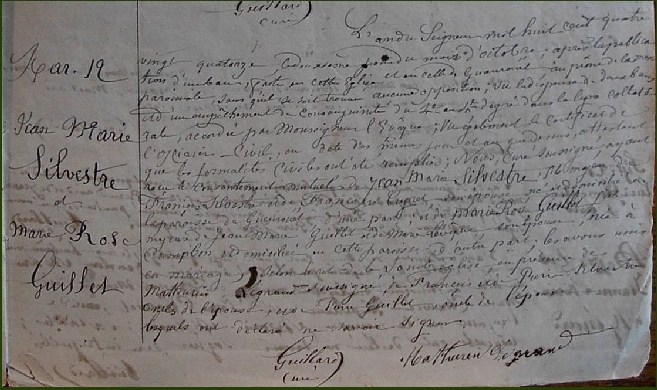 Guillard
curé
Mar. 19
Jean Marie
Silvestre
et
Marie Rose
Guillet
L'an du Seigneur mil huit cent quatre
vingt quatorze le du mois d'octobre, après la publica
tion d'un ban faite en cette église et en celle de au prône de la messe
paroissiale sans qu'il se soit trouvé aucune opposition; Vu la dispense de deux bans
et d'un empêchement de consanguinité du 4 au degré dans la ligne collaté
rale, accordée par Monseigneur l'Evêque; Vu également le certificat de
l'Officier Civil, en date des mêmes jour et an que dessus, attestant
que les formalités civiles ont été remplies; Nous, Curé soussigné, ayant
reçu le consentement mutuel de Jean Marie Silvestre, fils majeur de
François Silvestre et de Françoise né et domicilié en
la paroisse de d'une part; et de Marie Rose Guillet fille
mineure de Jean Marie Guillet et de Marie née à
et domiciliée en cette paroisse d'autre part, les avons unis
en mariage selon le rite de la Sainte église, en présence de
Mathurin Legrand soussigné de François et de Pierre Silvestre
oncle de l'époux, et de Pierre Guillet oncle de l'épouse
lesquels ont déclaré ne savoir signer
Guillard
curé
Mathurin Legrand